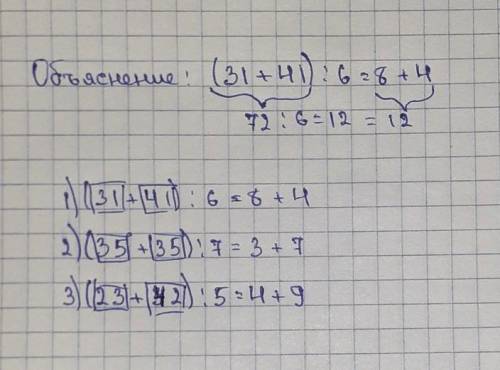 Объяснение: (31 + 41) : 6 = 8 + 4
72 : 6 = 12 = 12
1) (31 + 41) : 6 = 8 + 4
2) (35 + 35) : 7 = 3 + 7
3) (23 + 42) : 5 = 4 + 9